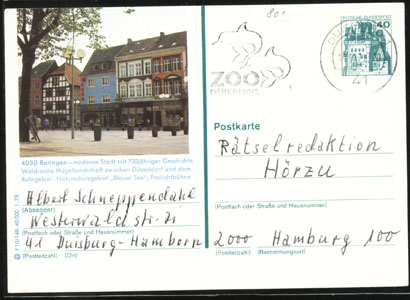 801
DEUTSCHE BUNDESPOST
40
ZOO
DUISBURG
41
4030 Ratingen – moderne Stadt mit 700jähriger Geschichte.
Waldreiche Hügellandschaft zwischen Düsseldorf und dem
Ruhrgebiet. Naturschutzgebiet „Blauer See“, Freilichtbühne.
Postkarte
Rätselredaktion
Hörzu
(Postfach oder Straße und Hausnummer)
2000 Hamburg 100
(Postleitzahl) (Bestimmungsort)
Albert Schneppendahl
(Absender)
Westerwald str. 21
(Postfach oder Straße und Hausnummer)
41 Duisburg-Hamborn
(Postleitzahl) (Ort)